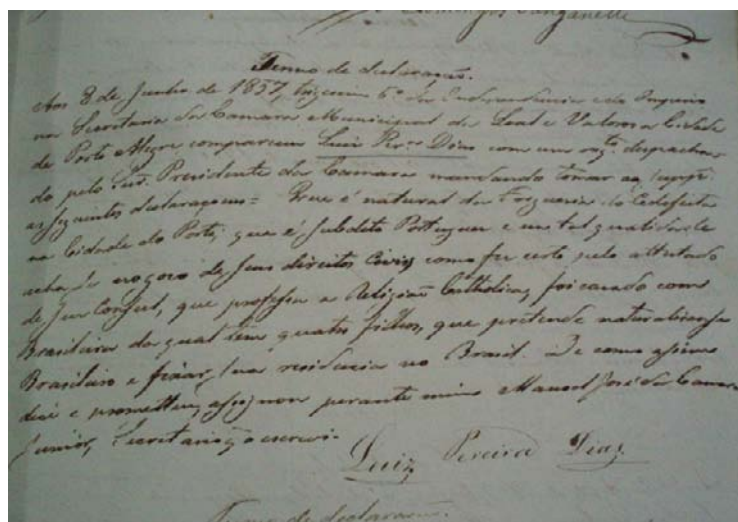 Domingos
Termo de declaração.
Aos 8 de Junho de 1857, trigesimo 6º da Independencia e do Imperio
na Secretaria da Camara Municipal da Leal e Valorosa Cidade
de Porto Alegre compareceu Luiz Perª Dias com um despacha
do pelo Snr. Presidente da Camara mandando tomar ao
as seguintes declaraçoens = Que é natural da Freguesia de Cedofeita
na Cidade do Porto, que é Subdito Portuguez e em tal qualidade
acha-se no goso de seus direitos Civis como fez certo pelo attestado
de seu Consul, que professa a Religião Catholica, foi casado com
Brasileira da qual tem quatro filhos, que pretende naturalisar-se
Brasileiro e fixar sua residencia no Brasil. De como assim
disse e prometteu, assignou perante mim Manoel José da Camara
Junior, Secretario q o escrevi.
Luiz Pereira Dias
Termo de declaração.